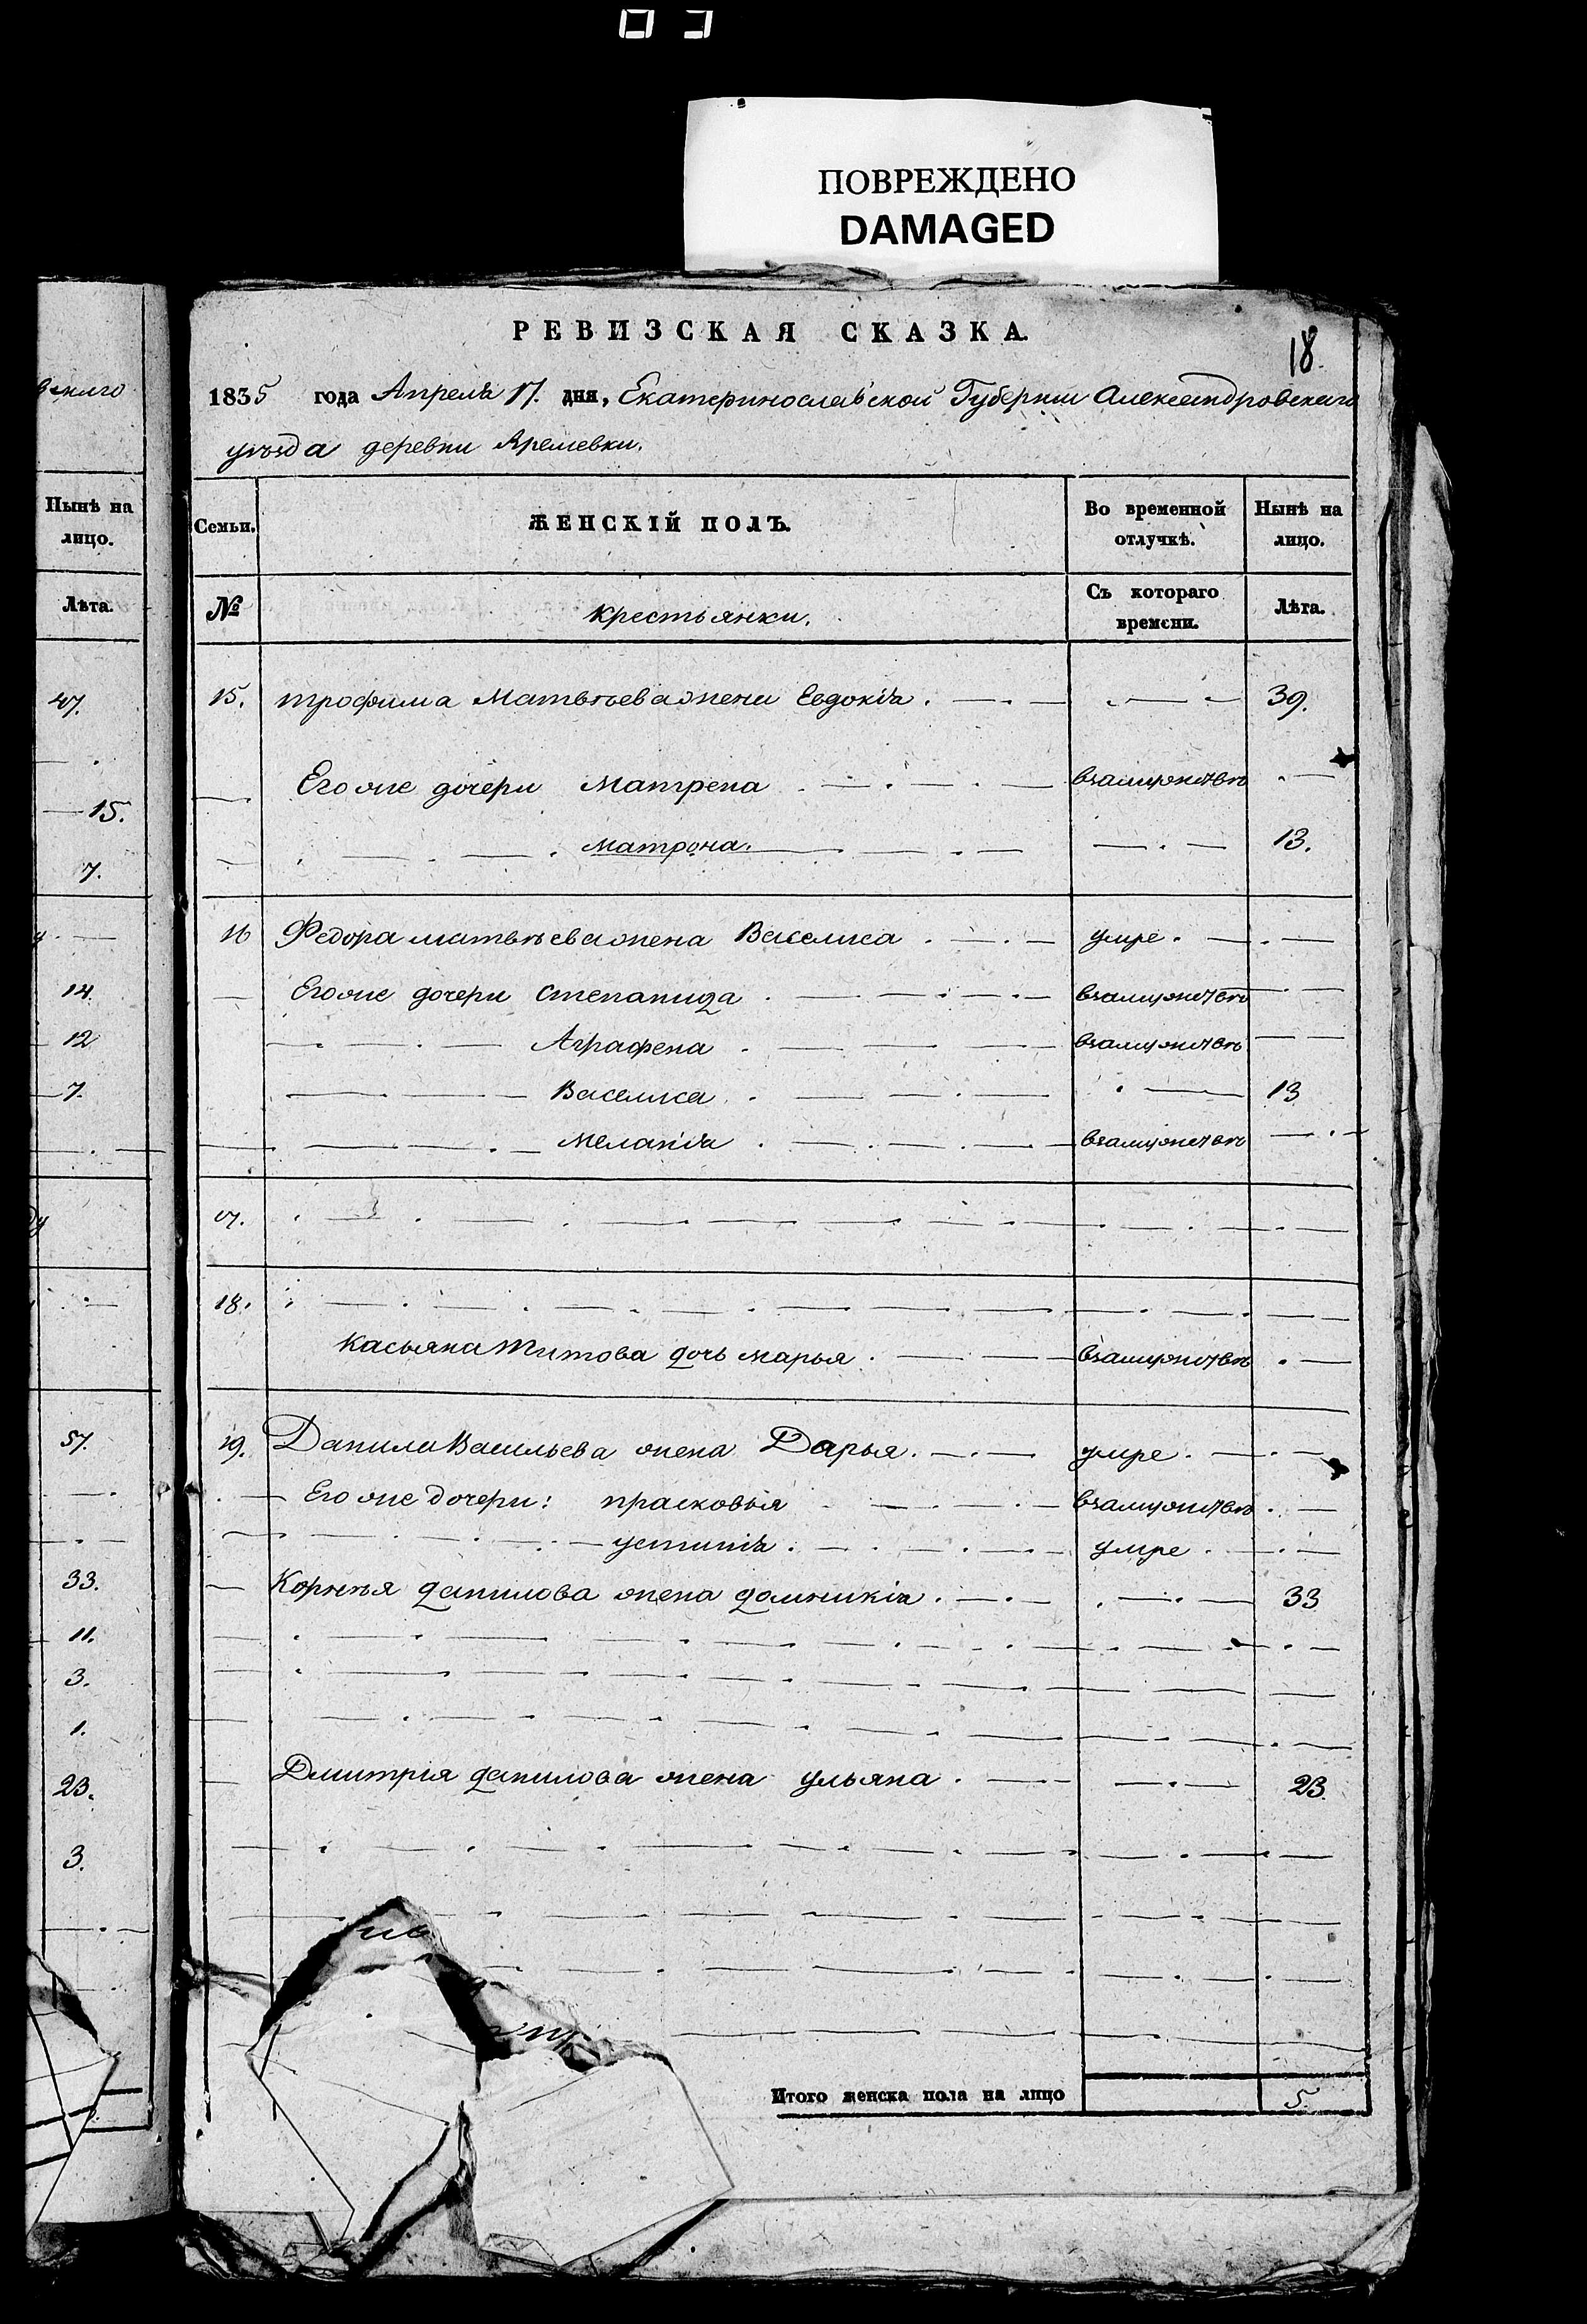 ПОВРЕЖДЕНО
DAMAGED
РЕВИЗСКАЯ СКАЗКА.
18.
1835 года Апреля 17. дня, Екатеринославской Губернии Александровскаго
уѣзда деревни Яремевки.
Нынѣ на лицо.
Лѣта.
47.
15.
7.
14.
12
7.
57.
33.
11.
3.
1.
23.
3.
Семьи. ЖЕНСКІЙ ПОЛЪ. Во временной отлучкѣ. Нынѣ на лицо.
№ крестьянки. Съ котораго времени. Лѣта.
15. трофима Матвѣева жена Евдокія. 39.
Его же дочери Матрена взамужствѣ
матрона. 13.
16 Федора матвѣева жена Василиса умре.
Его же дочери степанида взамужствѣ
Аграфена взамужствѣ
Василиса 13
меланія взамужствѣ
17.
18.
касьяна титова дочь марья взамужствѣ
19. Данила Васильева жена Дарья. умре.
Его же дочери: прасковья взамужствѣ
устинія. умре.
Корнѣя данилова жена домникія. 33
Дмитрія данилова жена ульяна. 23.
Итого женска пола на лицо 5.